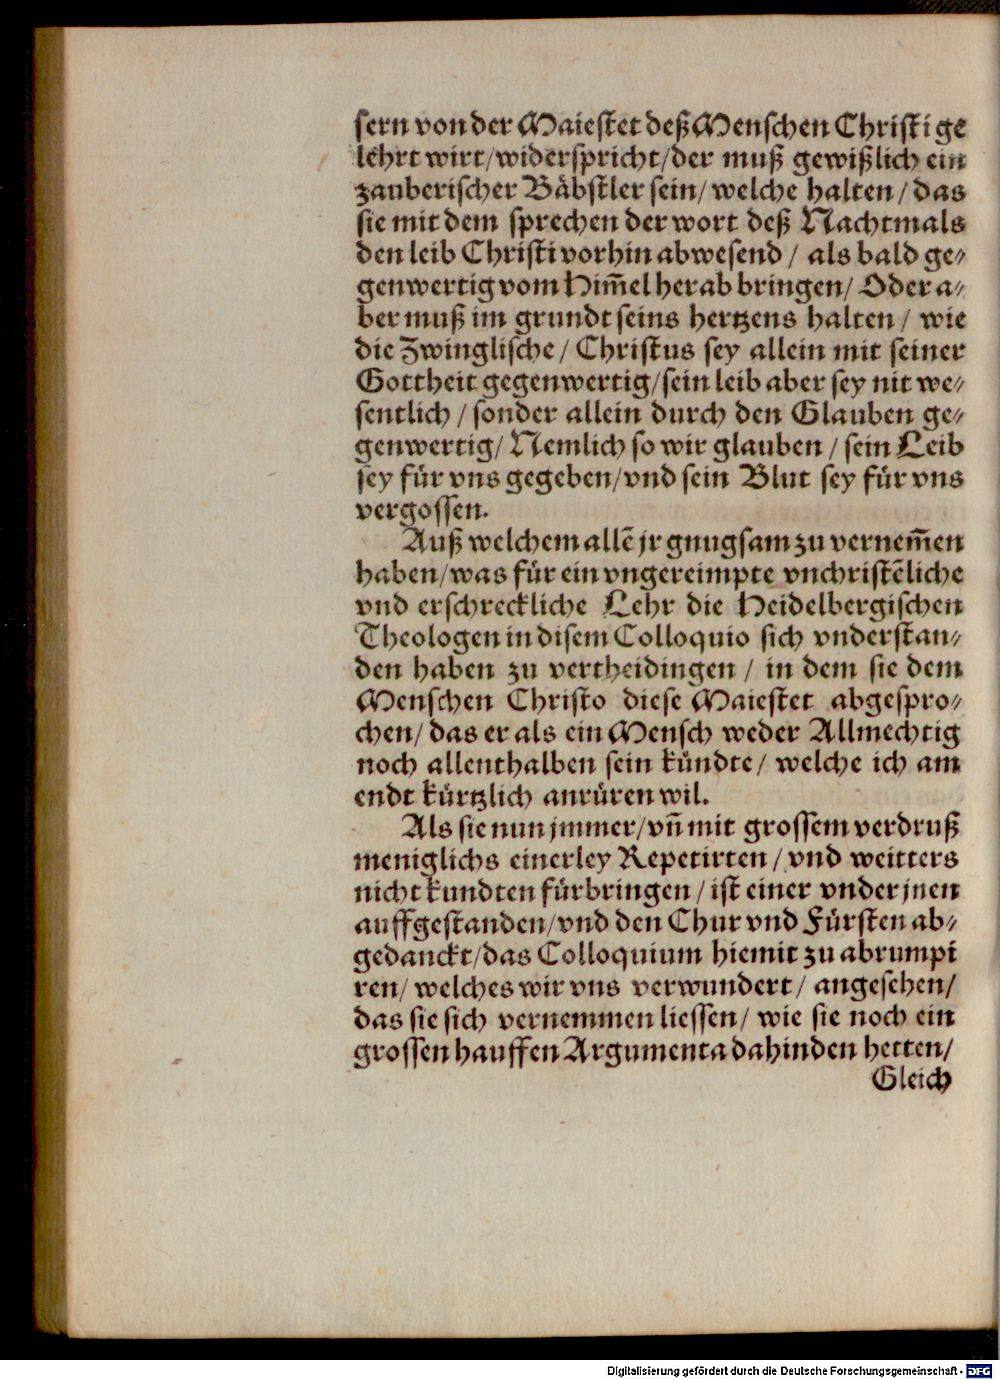 sern von der Maiestet deß Menschen Christi ge
lehrt wirt/widerspricht/der muß gewißlich ein
zauberischer Bäbstler sein/ welche halten/das
sie mit dem sprechen der wort deß Nachtmals
den leib Christi vorhin abwesend / als bald ge⸗
genwertig vom Him̃el herab bringen/ Oder a⸗
ber muß im grundt seins hertzens halten/ wie
die Zwinglische/ Christus sey allein mit seiner
Gottheit gegenwertig/sein leib aber sey nit we⸗
sentlich / sonder allein durch den Glauben ge⸗
genwertig/ Nemlich so wir glauben / sein Leib
sey für vns gegeben/vnd sein Blut sey für vns
vergossen.
Auß welchem allẽ jr gnugsam zu vernem̃en
haben/was für ein vngereimpte vnchristẽliche
vnd erschreckliche Lehr die Heidelbergischen
Theologen in disem Colloquio sich vnderstan⸗
den haben zu vertheidingen / in dem sie dem
Menschen Christo diese Maiestet abgespro⸗
chen/ das er als ein Mensch weder Allmechtig
noch allenthalben sein kündte/ welche ich am
endt kürtzlich anrüren wil.
Als sie nun jmmer/vn̄ mit grossem verdruß
meniglichs einerley Repetirten/ vnd weitters
nicht kundten fürbringen / ist einer vnder jnen
auffgestanden/vnd den Chur vnd Fürsten ab⸗
gedanckt/das Colloquium hiemit zu abrumpi
ren/ welches wir vns verwundert/ angesehen/
das sie sich vernemmen liessen/ wie sie noch ein
grossen hauffen Argumenta dahinden hetten/
Gleich
Digitalisierung gefördert durch die Deutsche Forschungsgemeinschaft - DFG